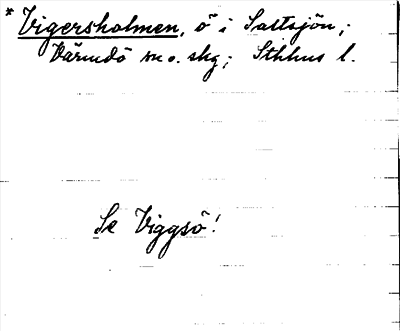 * Vigersholmen, ö i Saltsjön;
Värmdö sn o. skg; Sthlms l.
Se Viggsö!